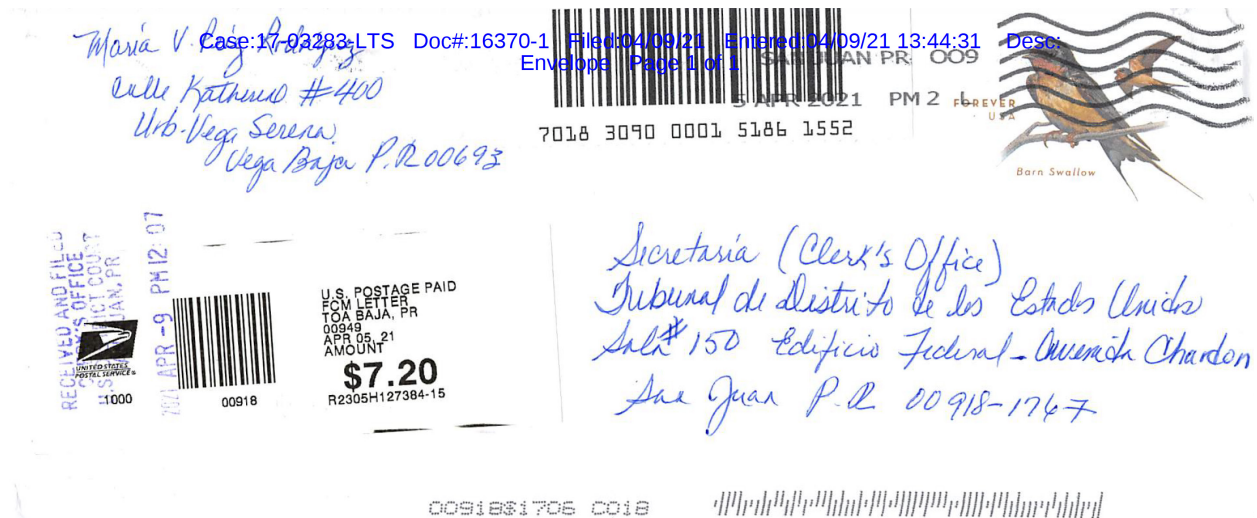 Case:17-03283-LTS Doc#:16370-1 Filed:04/09/21 Entered:04/09/21 13:44:31 Desc:
Envelope Page 1 of 1
María V.
Calle Katherine #400
Urb. Vega Serena
Vega Baja P.R 00693
7018 3090 0001 5186 1552
SAN JUAN PR 009
5 APR 2021 PM 2 L
FOREVER
USA
Barn Swallow
RECEIVED AND FILED
CLERK'S OFFICE
U.S. DISTRICT COURT
SAN JUAN, PR
2021 APR -9 PM 12: 07
UNITED STATES
POSTAL SERVICE®
1000
00918
U.S. POSTAGE PAID
FCM LETTER
TOA BAJA, PR
00949
APR 05, 21
AMOUNT
$7.20
R2305H127384-15
Secretaría (Clerk's Office)
Tribunal de Distrito de los Estados Unidos
Sala #150 Edificio Federal - Avenida Chardon
San Juan P.R 00918-1767
00918$1706 C018